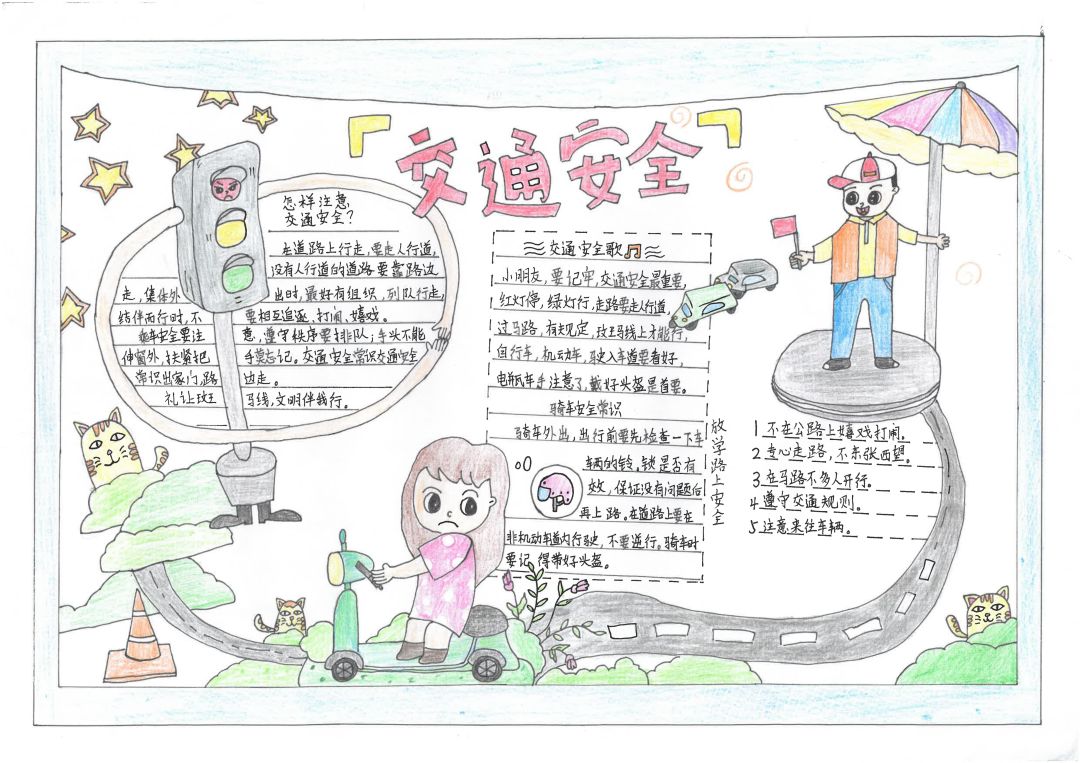 交通安全
怎样注意
交通安全？
在道路上行走,要走人行道,
没有人行道的道路要靠路边
走,集体外出时,最好有组织,列队行走,
结伴而行时,不要相互追逐、打闹、嬉戏。
乘车安全要注意,遵守秩序要排队;手头不能
伸窗外,扶紧把手莫忘记。交通安全常识交通安全
常识出家门,路边走。
礼让斑马线,文明伴我行。
交通安全歌
小朋友,要记牢,交通安全最重要,
红灯停,绿灯行,走路要走人行道,
过马路,有规定,斑马线上才能行,
自行车,机动车,驶入车道要看好,
电瓶车手注意了,戴好头盔是首要。
骑车安全常识
骑车外出,出行前要先检查一下车
车辆的铃、锁是否有
效,保证没有问题后
再上路。在道路上要在
非机动车道内行驶,不要逆行。骑车时
要记得带好头盔。
放学路上安全
1 不在公路上嬉戏打闹。
2 专心走路,不东张西望。
3 在马路不多人并行。
4 遵守交通规则。
5 注意来往车辆。